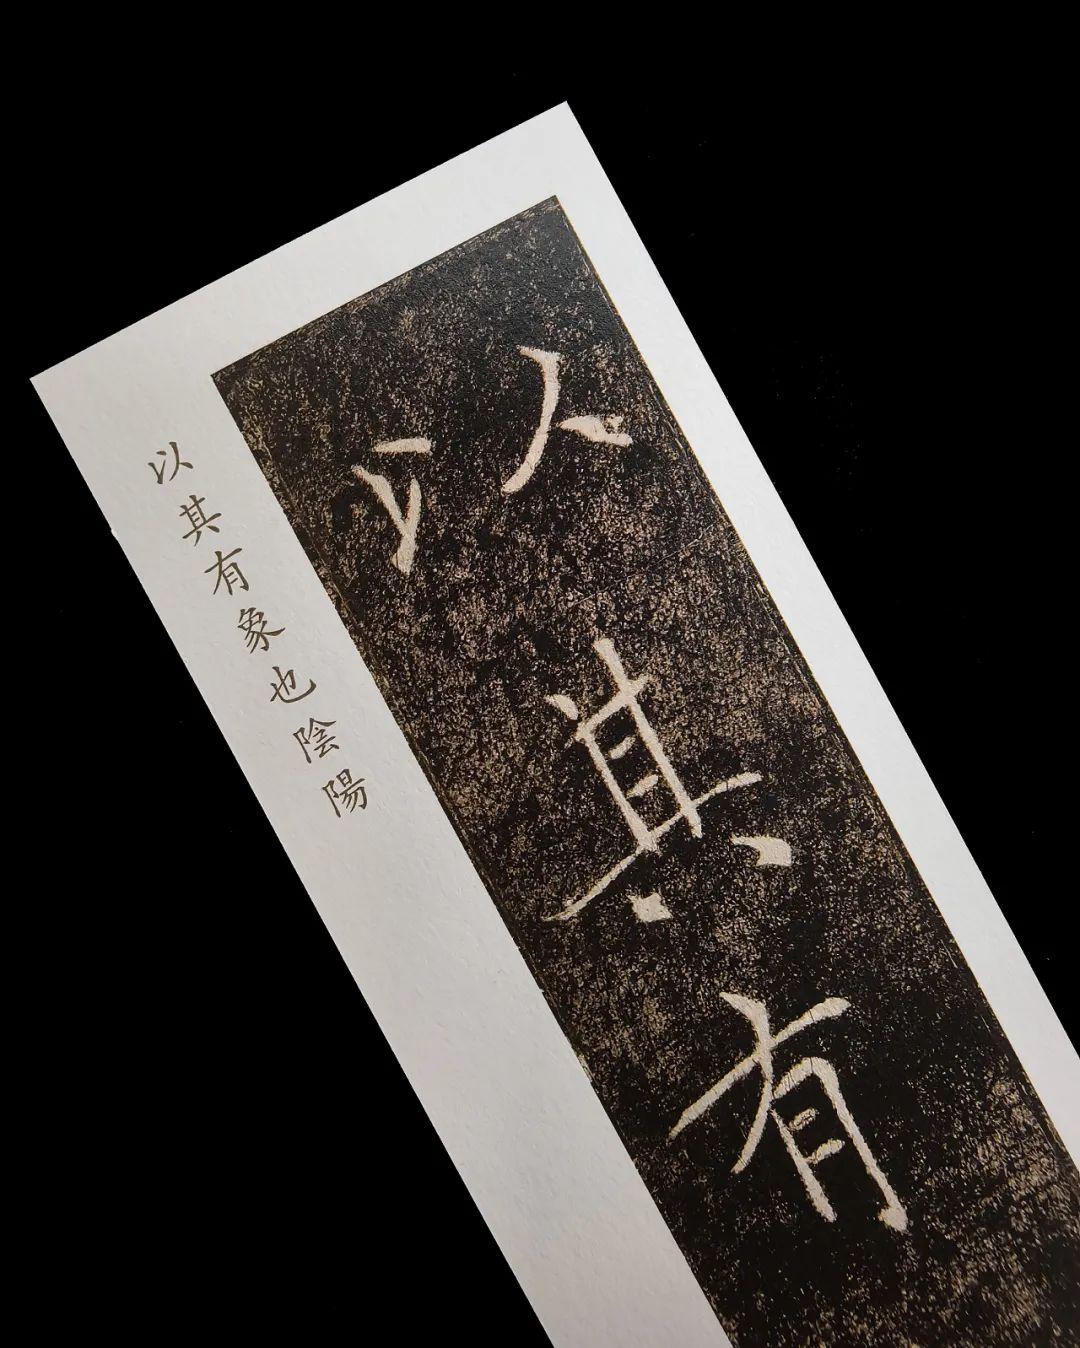 以其有
以其有象也陰陽